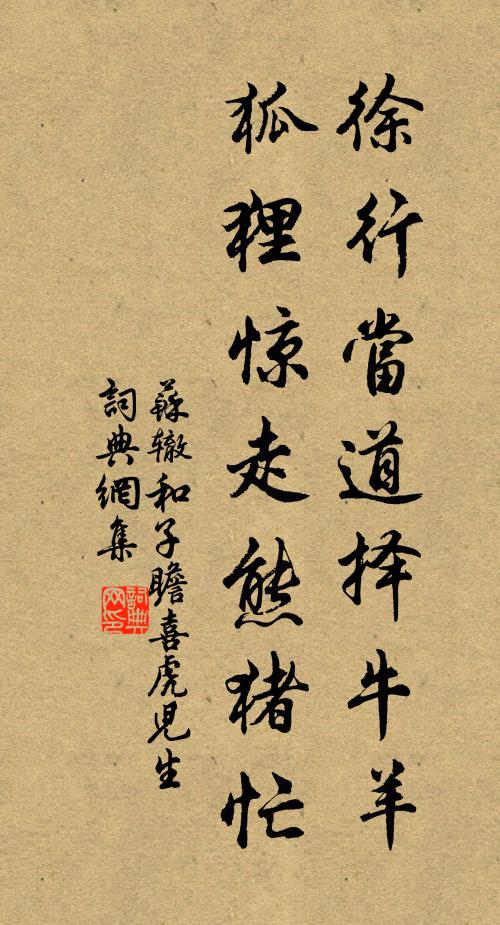 徐行當道择牛羊
狐狸惊走熊猪忙
蘇辙和子瞻喜虎児生
詞典網集
詞典网印